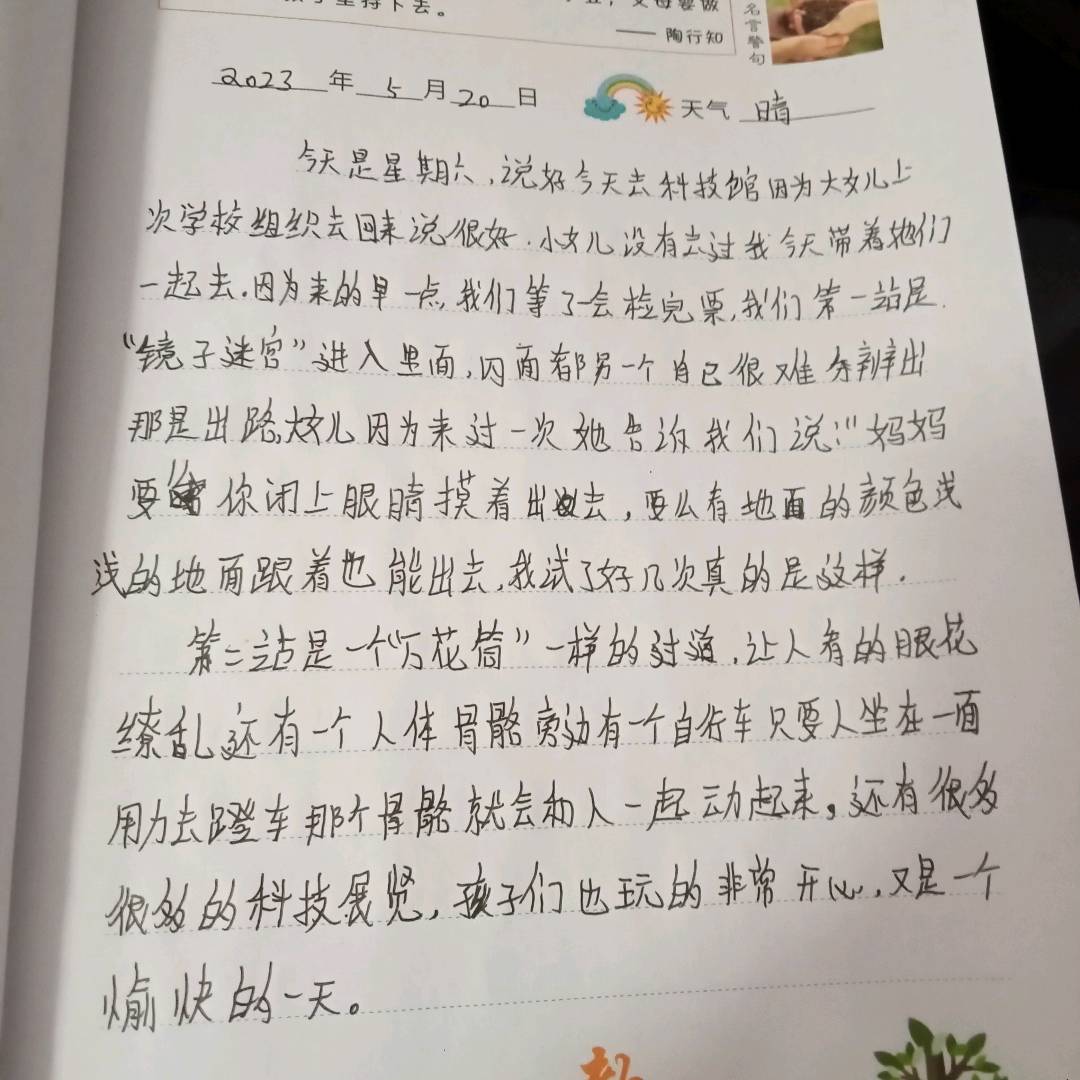 坚持下去。
父母要做
—— 陶行知
名言警句
2023年5月20日 天气 晴
今天是星期六,说好今天去科技馆因为大女儿上
次学校组织去回来说很好.小女儿没有去过我今天带着她们
一起去.因为来的早一点,我们等了一会检完票,我们第一站是.
“镜子迷宫”进入里面,四面都另一个自己很难分辨出
那是出路,大女儿因为来过一次她告诉我们说:“妈妈
要 你闭上眼睛摸着出去,要么有地面的颜色浅
浅的地面跟着也能出去,我试了好几次真的是这样.
第二站是一个“万花筒”一样的过道,让人看的眼花
缭乱还有一个人体骨骼旁边有一个自行车只要人坐在一面
用力去蹬车那个骨骼就会和人一起动起来。还有很多
很多的科技展览,孩子们也玩的非常开心,又是一个
愉快的一天。